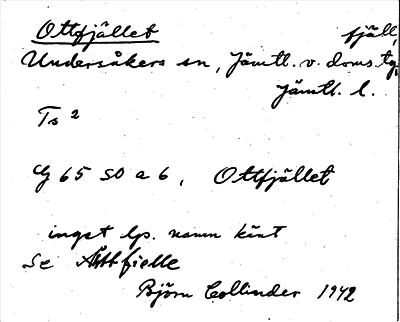 Ottfjället fjäll,
Undersåkers sn, Jämtl. v. doms. tg,
Jämtl. l.
Ts 2
G 65 SO a 6, Ottfjället
inget lp. namn känt
Se Åttfjelle
Björn Collinder 1942